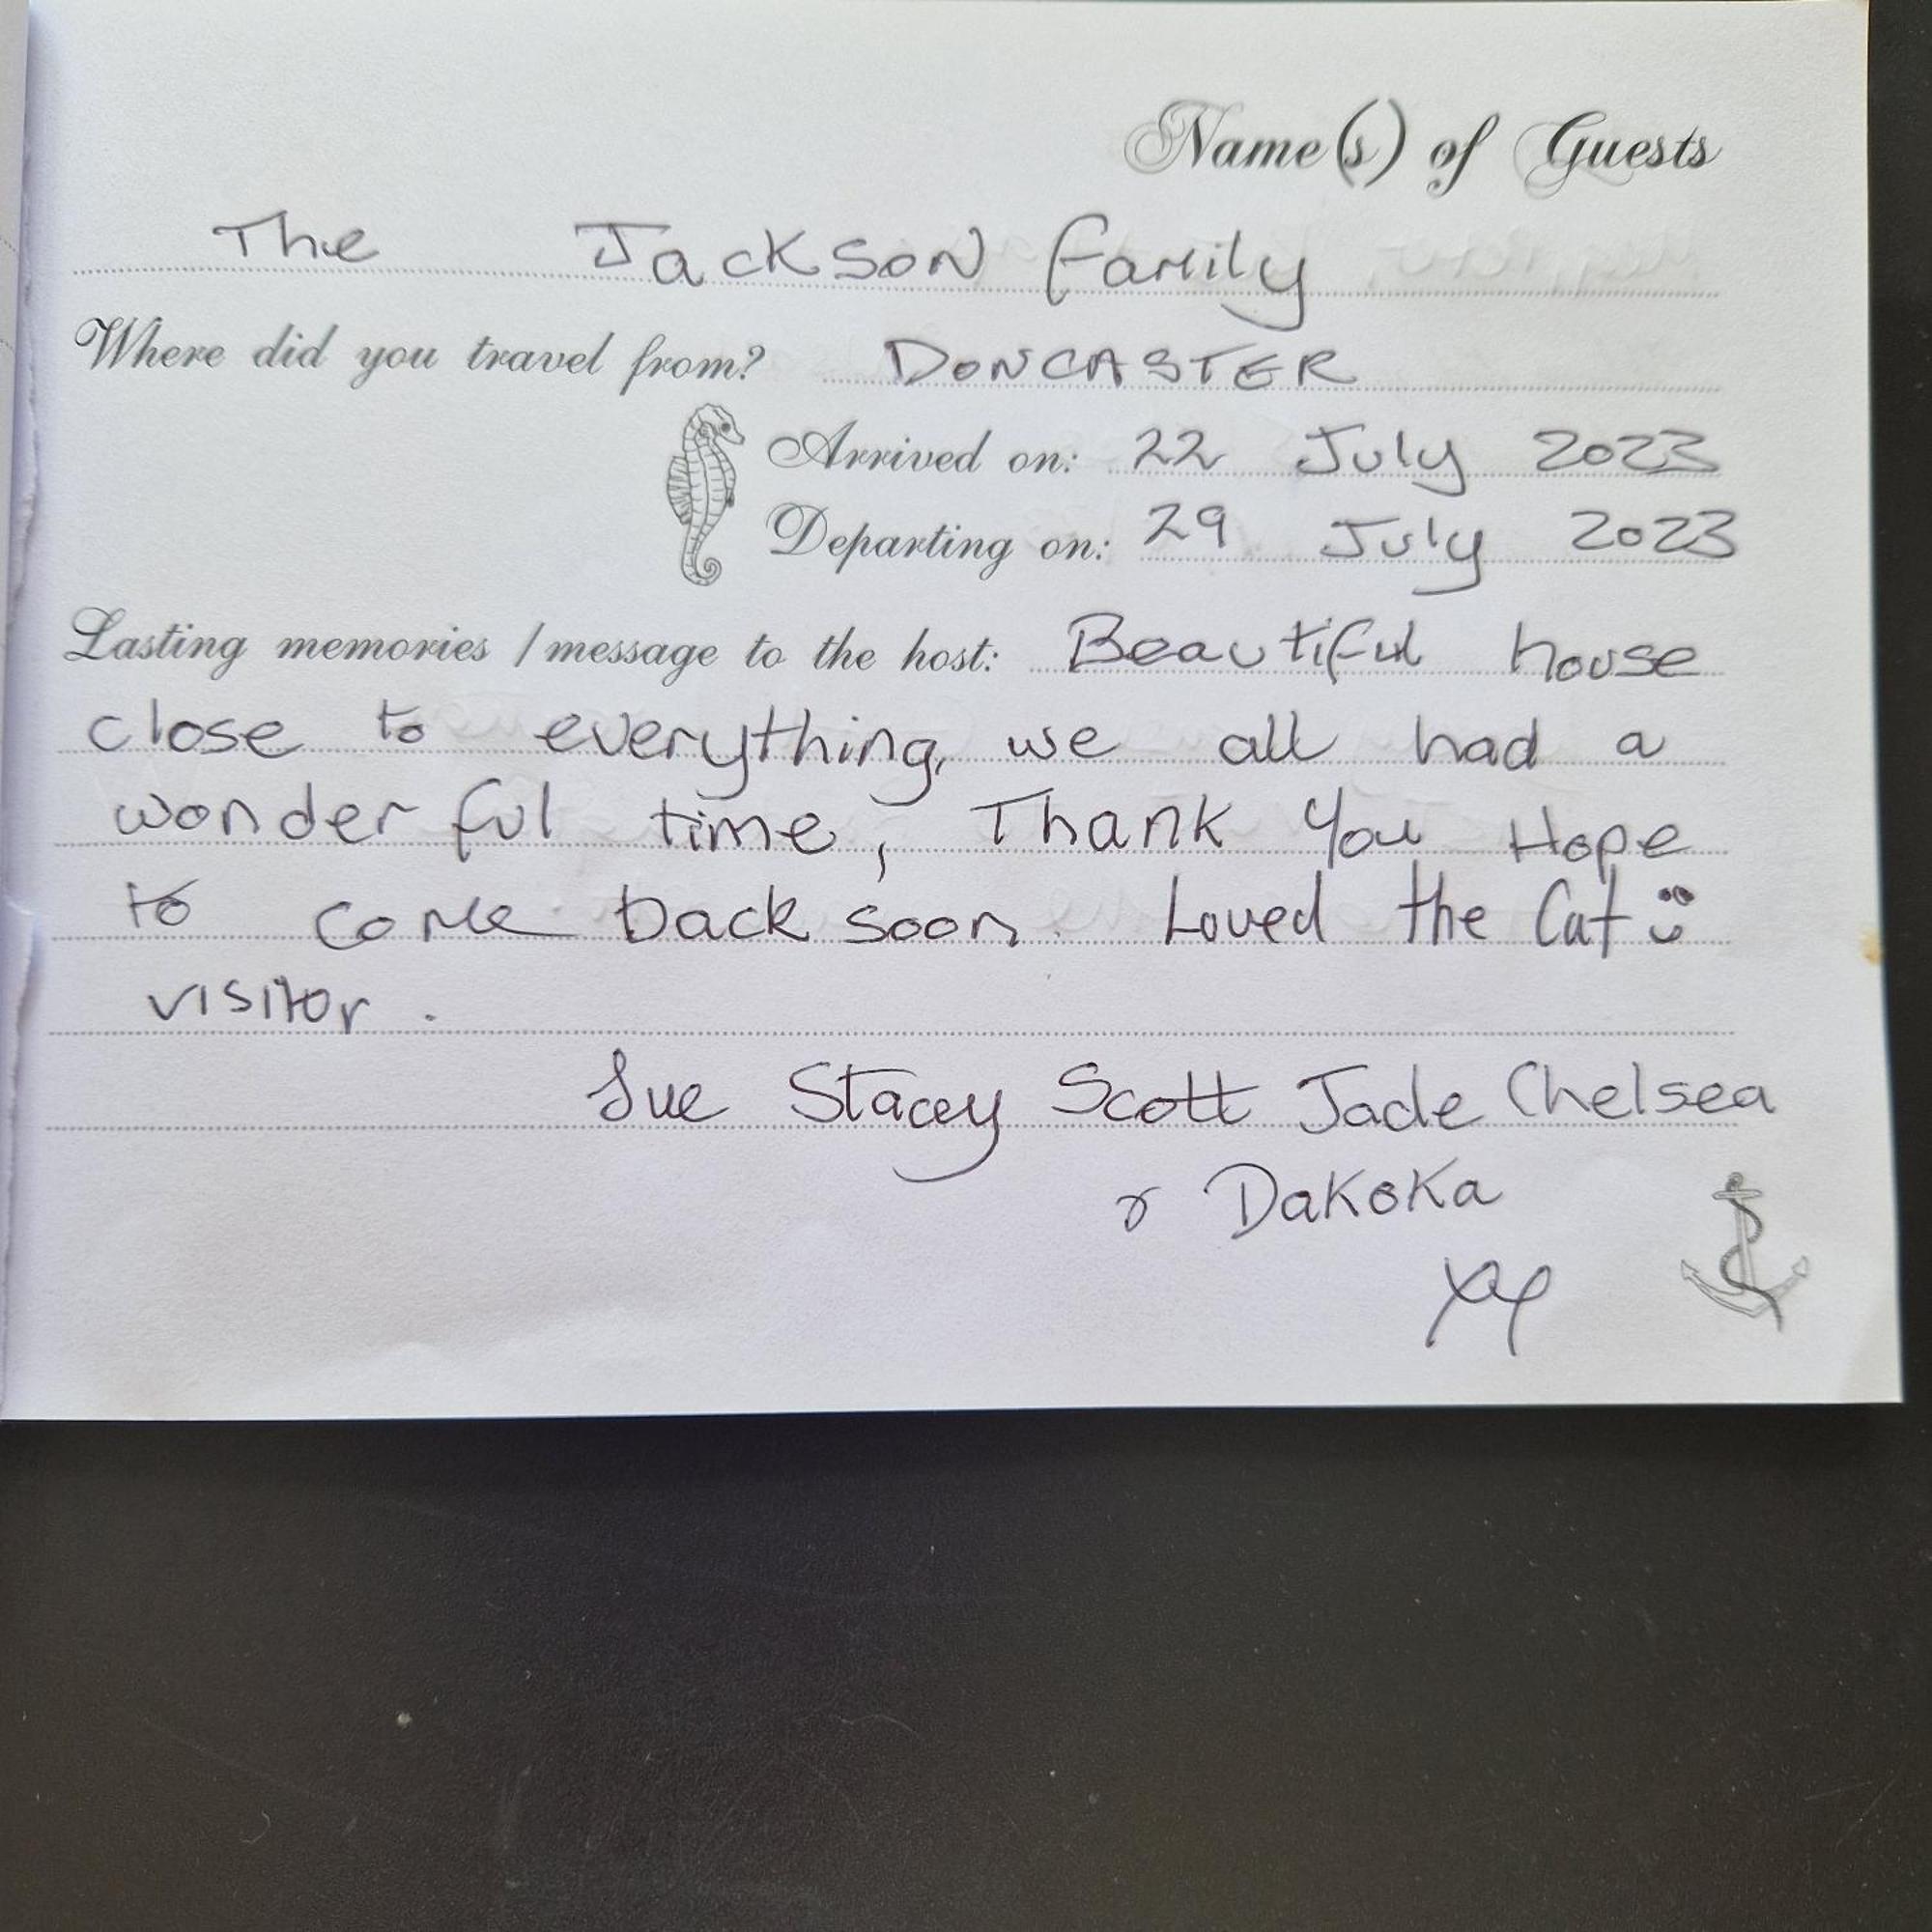 Name(s) of Guests
The Jackson family
Where did you travel from? DONCASTER
Arrived on: 22 July 2023
Departing on: 29 July 2023
Lasting memories / message to the host: Beautiful house
close to everything, we all had a
wonderful time, Thank You Hope
to come back soon. Loved the Cat
visitor.
Sue Stacey Scott Jade Chelsea
& Dakoka
xx